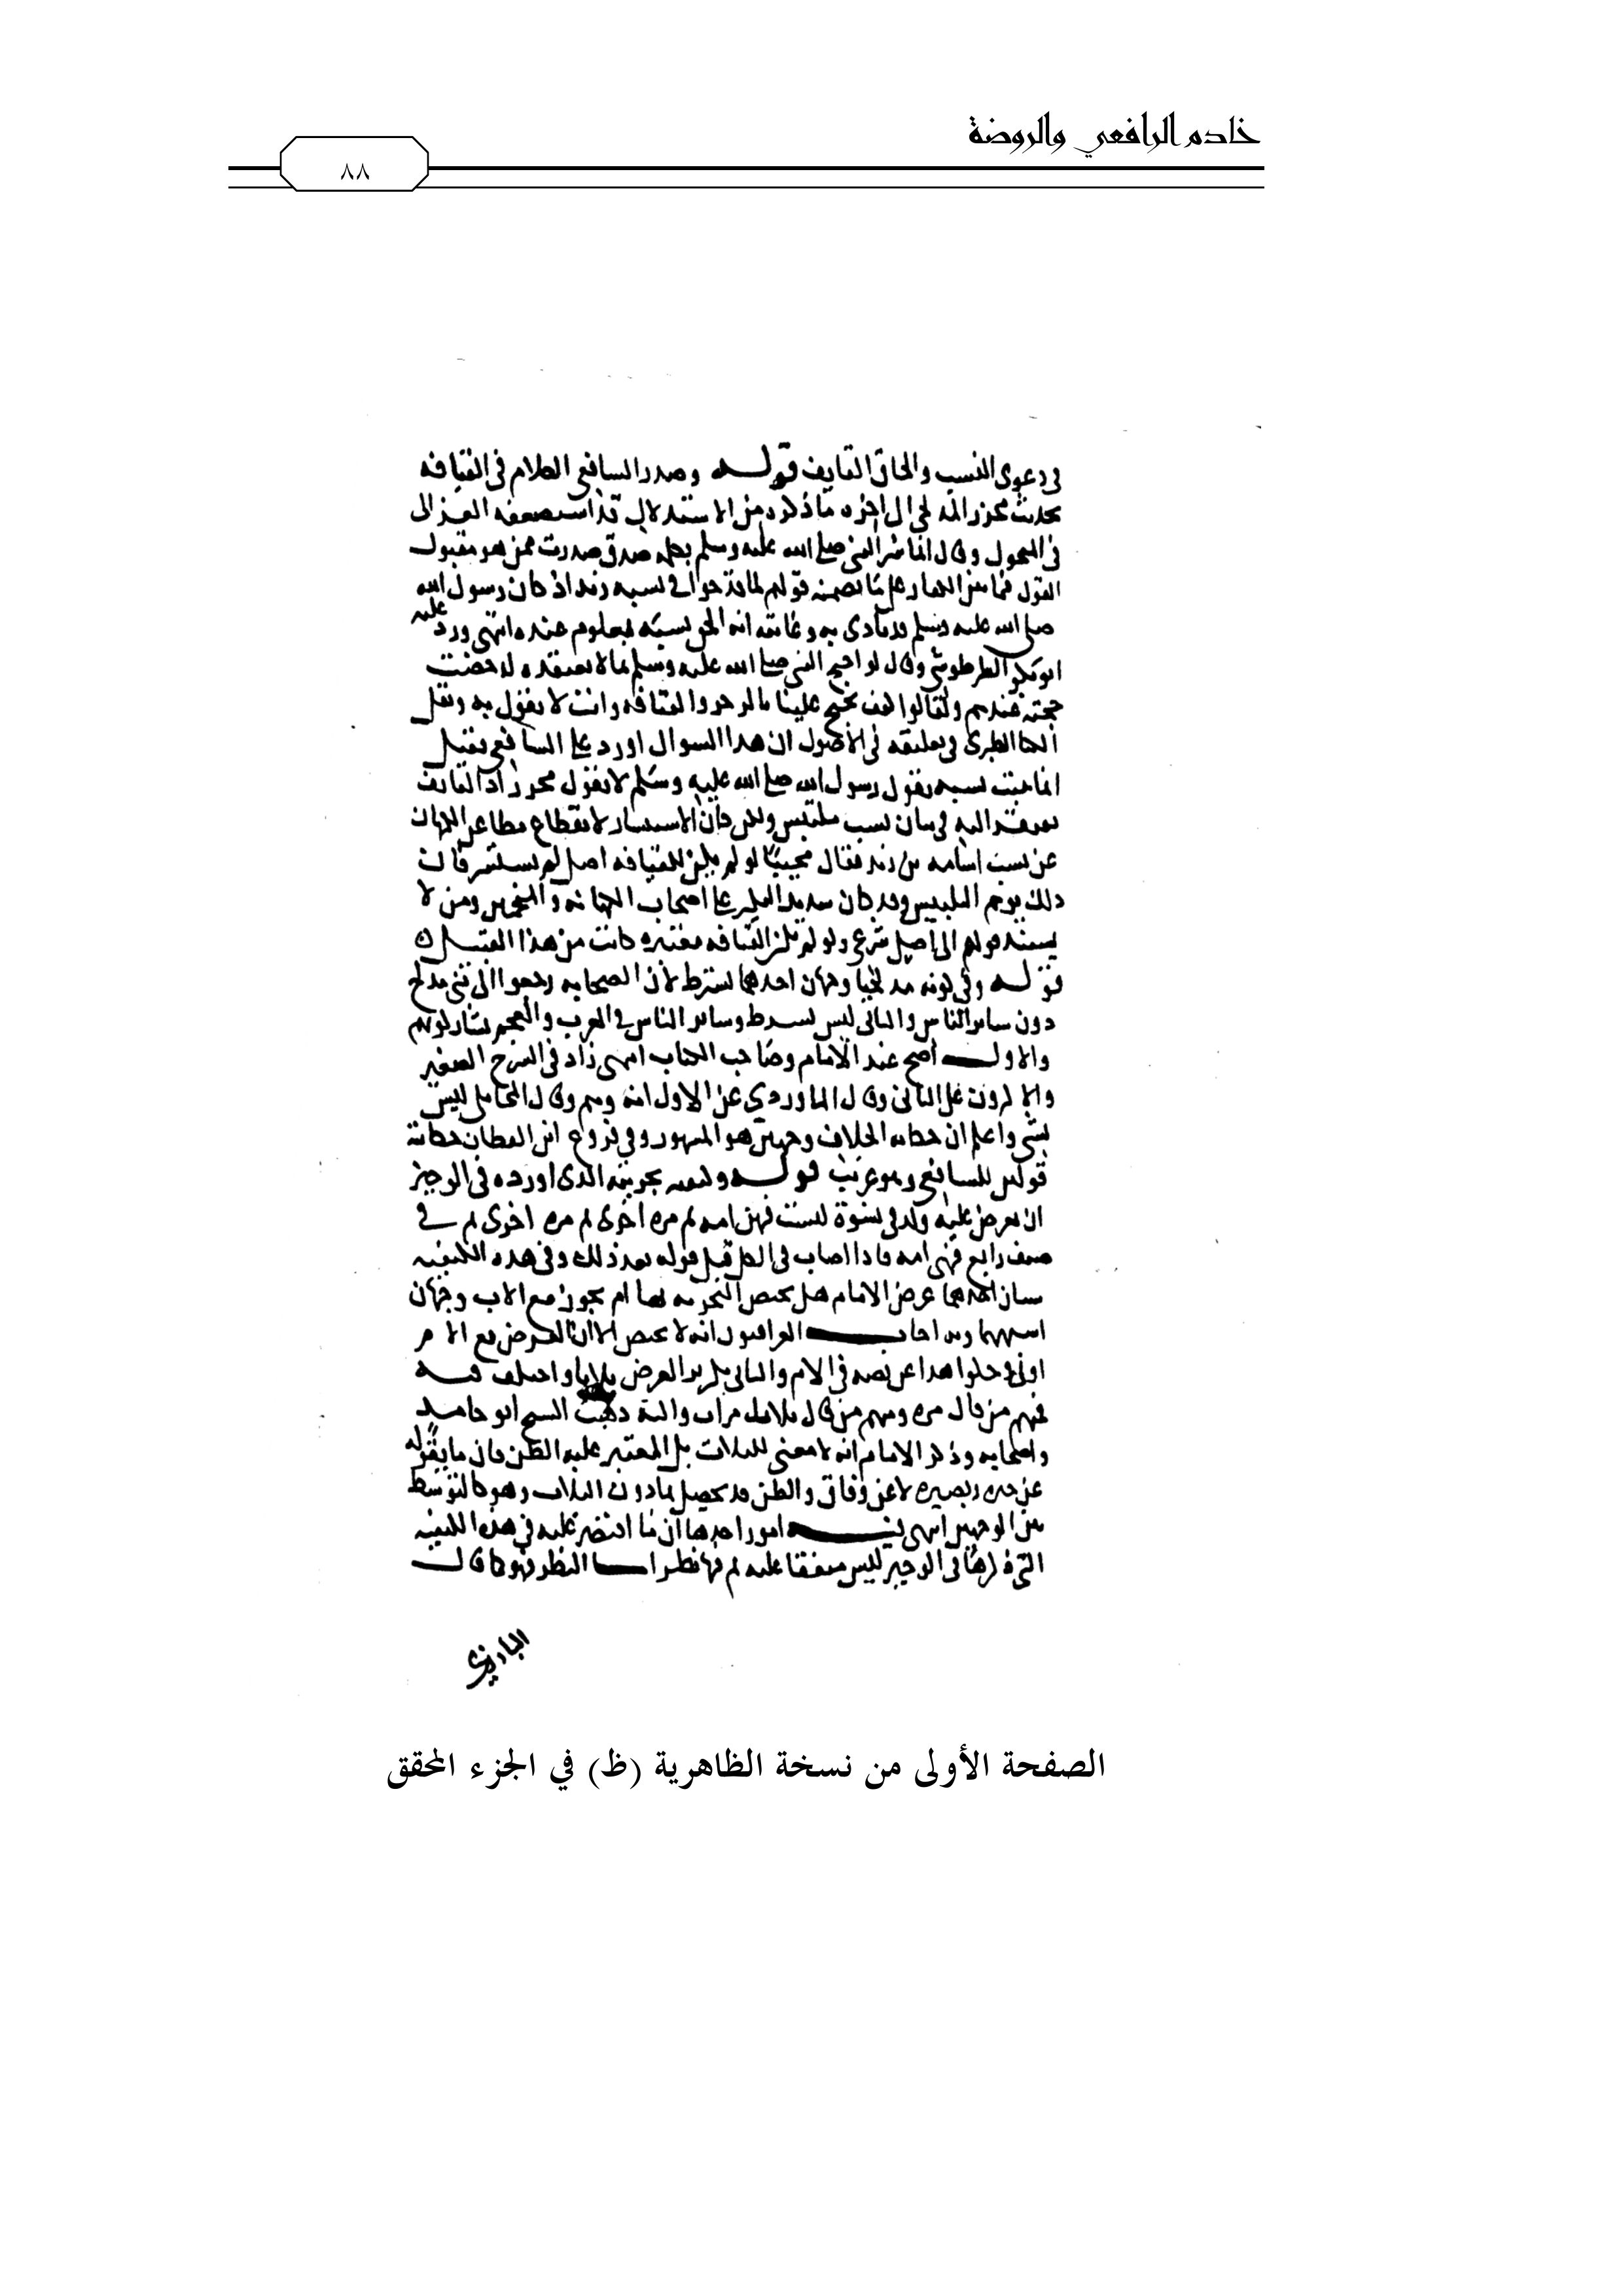 خادم الرافعي والروضة
٨٨
في دعوى النسب والحاق القايف قوله وصدر الشافعي الكلام في القيافه
بحديث مجزز المدلجي الى اخره ما ذكره من الاستدلال قد استضعفه الغزالى
في المنحول وقال انما سر النبي صلى الله عليه وسلم بكلمه صدق صدرت ممن هو مقبول
القول فيما بين الكفار على قولهم لما قدحوا في نسبه اذ كان رسول الله
صلى الله عليه وسلم قد تأذى به انه الحق نسبه بمعلوم عنده انتهى ورد عليه
ابو بكر الطرطوشي وقال لو احتج النبي صلى الله عليه وسلم بما لا يعتقده لدحضت
حجته عندهم ولقالوا كيف تحتج علينا والقيافه وانت لا تقول به ونقل
الكيا الطبري في تعليقه في الأصول ان هذا السوال اورد على الشافعي فقيل
انما ثبت نسبه بقول رسول الله صلى الله عليه وسلم لا بقول مجزز اذ القايف
يفتقر اليه في بيان نسب ملتبس ولكن كان الاستبشار لانقطاع مطاعن
عن نسب اسامه بن زيد فقال مجيبا لو لم يكن للقيافه اصل لم يستبشر فان
ذلك يوهم التلبيس وقد كان شديد النكير على اصحاب الكهانه والتنجيم ومن لا
يستند قولهم الى اصل شرعي ولو لم تكن القيافه معتبره كانت من هذا القبيل
قوله وفي كونه مدلجيا وجهان احدهما يشترط لان الصحابه رجعوا الى بني مدلج
دون سائر الناس والثاني ليس بشرط وسائر الناس في العرب والعجم
والاول أصح عند الامام وصاحب الكتاب انتهى زاد في الشرح الصغير
والاكثرون على الثاني وقال الماوردي عن الاول انه وهم وقال المحاملي ليس
بشي واعلم ان حكايه الخلاف وجهين هو المشهور وفي فروع ابن القطان حكايته
قولين للشافعي وهو غريب قوله تجربته الذي اورده في الوجيز
ان يعرض عليه ولد في نسوة ليست فيهن امه ثم مره اخرى ثم مره اخرى ثم في
صنف رابع فيهن امه فاذا اصاب في الكل قبل قوله بعد ذلك وفي هذه الكيفيه
احدهما عرض الامام هل يختص التجربه بها ام يجوز مع الاب وجهان
العراقيون انه لا يختص الا ان العرض مع الام
اولى هذا عن نصه في الام والثاني العرض ثلاثا واختلف فيه
فمنهم من قال مره ومنهم من قال ثلاث مرات واليه ذهب الشيخ ابو حامد
واصحابه وذكر الامام انه لا معنى للثلاث بل المعتبر غلبه الظن فان ما يقوله
عن خبره وبصيره لا عن وفاق والظن قد يحصل بما دون الثلاث وهو كالتوسط
بين الوجهين انتهى فيه امور احدها ان ما اقتصر عليه في هذه الكيفيه
التي ذكرها في الوجيز ليس متفقا عليه ثم فيها نظر اما النظر فهو كما قال
البارزي
الصفحة الأولى من نسخة الظاهرية (ظ) في الجزء المحقق